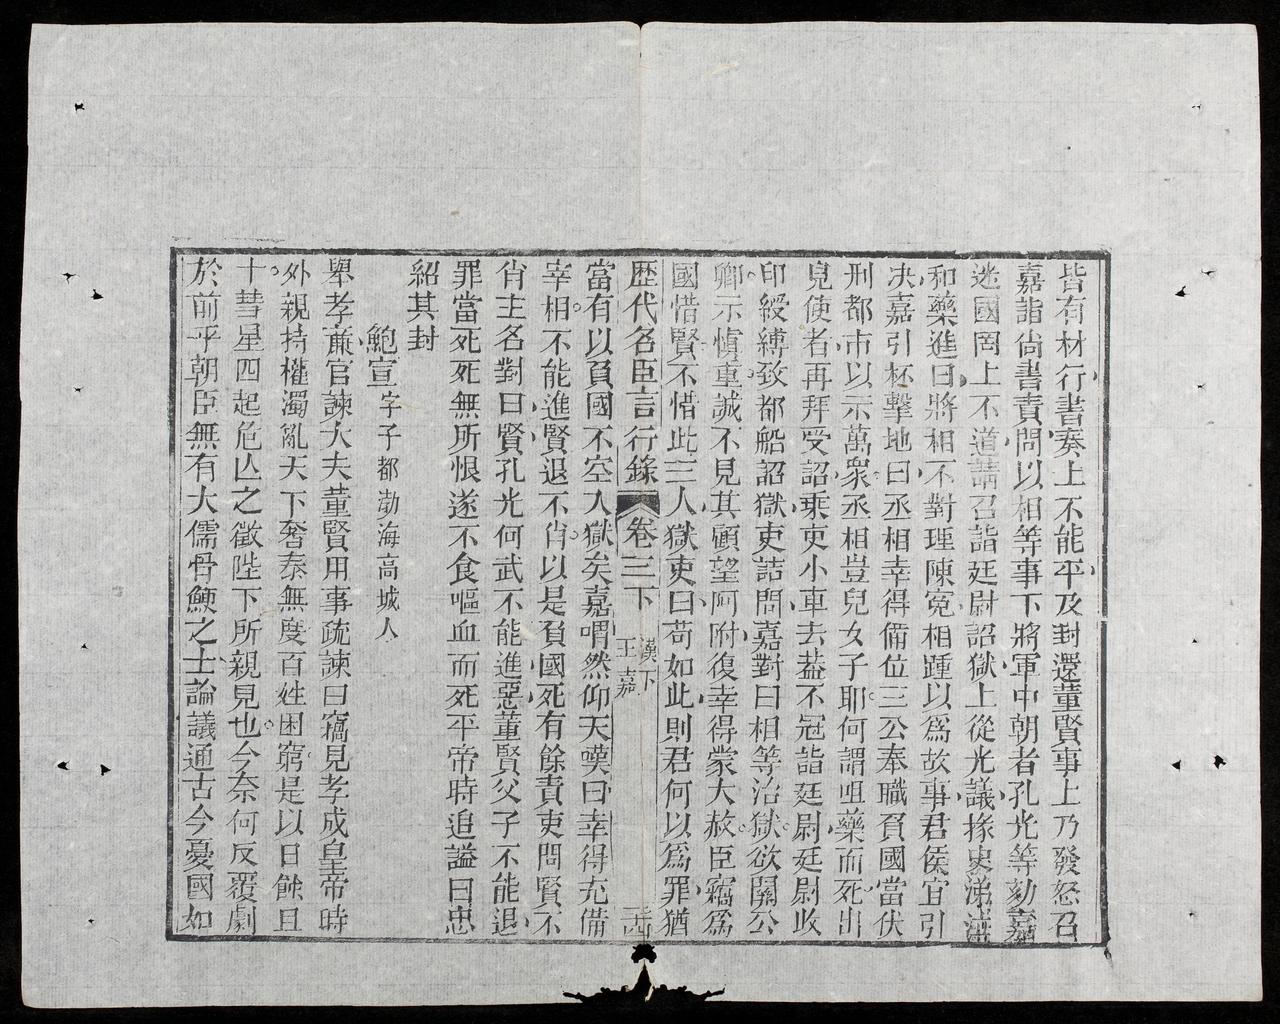 皆有材行書奏上不能平及封還董賢事上乃發怒召
嘉詣尙書責問以相等事下將軍中朝者孔光等劾嘉
迷國罔上不道請召詣廷尉詔獄上從光議掾史涕泣
和藥進曰將相不對理陳寃相踵以爲故事君侯宜引
决嘉引杯擊地曰丞相幸得備位三公奉職負國當伏
刑都市以示萬衆丞相豈兒女子耶何謂咀藥而死出
見使者再拜受詔乘吏小車去葢不冠詣廷尉廷尉收
印綬縛致都船詔獄吏詰問嘉對曰相等治獄欲關公
卿示愼重誠不見其顧望阿附復幸得蒙大赦臣竊爲
國惜賢不惜此三人獄吏曰苟如此則君何以爲罪猶
歷代名臣言行錄 卷三下 漢下 王嘉
當有以負國不空入獄矣嘉喟然仰天嘆曰幸得充備
宰相不能進賢退不肖以是負國死有餘責吏問賢不
肖主名對曰賢孔光何武不能進惡董賢父子不能退
罪當死死無所恨遂不食嘔血而死平帝時追謚曰忠
紹其封
鮑宣字子都渤海高城人
舉孝亷官諫大夫董賢用事疏諫曰竊見孝成皇帝時
外親持權濁亂天下奢泰無度百姓困窮是以日蝕且
十彗星四起危亾之徵陛下所親見也今奈何反覆劇
於前乎朝臣無有大儒骨鯁之士論議通古今憂國如